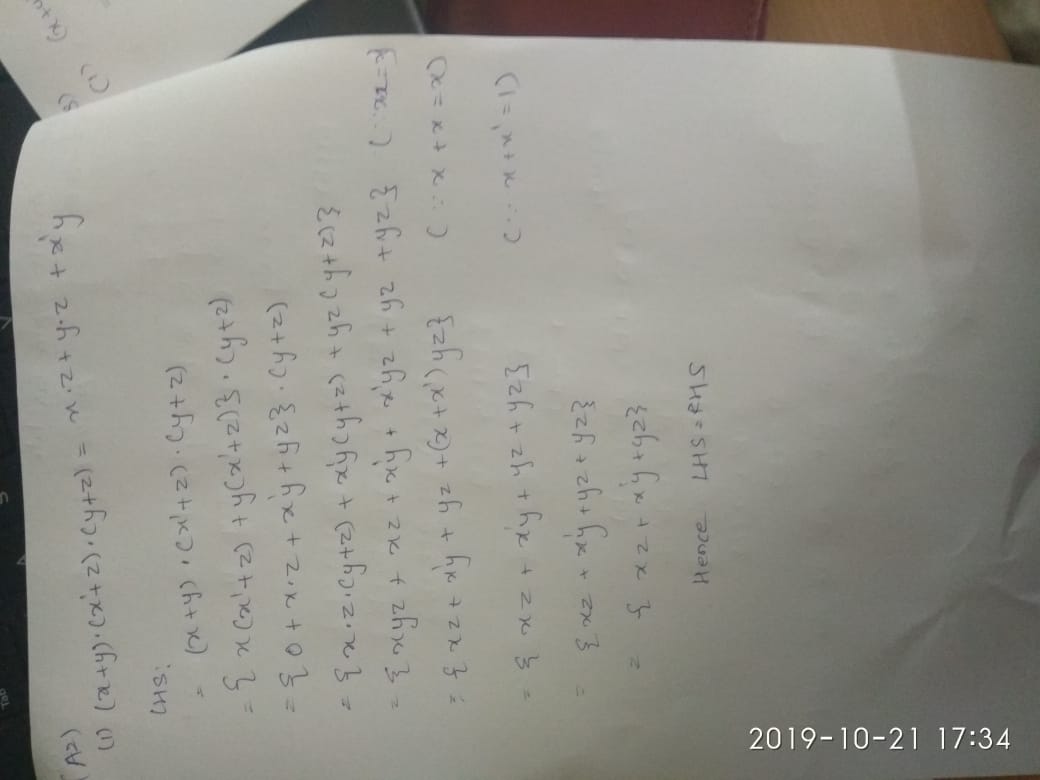 (A2)
(1) (x+y)·(x'+z)·(y+z) = x·z + y·z + x'y
LHS:
= (x+y)·(x'+z)·(y+z)
= { x(x'+z) + y(x'+z)}·(y+z)
= { 0 + x·z + x'y + yz}·(y+z)
= { x·z·(y+z) + x'y(y+z) + yz(y+z)}
= { xyz + xz + x'y + x'yz + yz + yz} (∵ xx=x)
= { xz + x'y + yz + (x+x')yz} (∵ x+x=x)
= { xz + x'y + yz + yz} (∵ x+x'=1)
= { xz + x'y + yz + yz}
= { xz + x'y + yz}
Hence LHS=RHS
2019-10-21 17:34